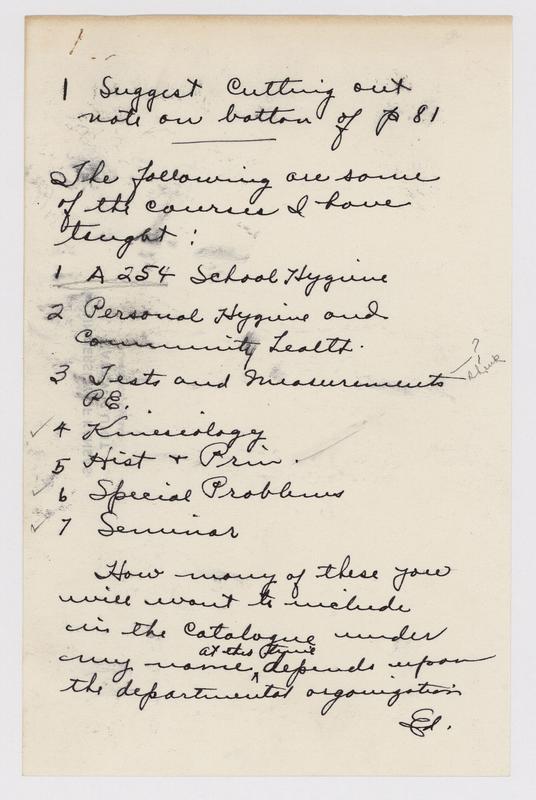 1 Suggest Cutting out
note on bottom of p 81
The following are some
of the courses I have
taught :
1 A 254 School Hygiene
2 Personal Hygiene and
Community Health.
3 Tests and Measurements
?
P.E.
✓ 4 Kinesiology
5 Hist + Prin.
✓ 6 Special Problems
✓ 7 Seminar
How many of these you
will want to include
in the Catalogue under
at this time
my name, ^ depends upon
the departmental organization
Ed.